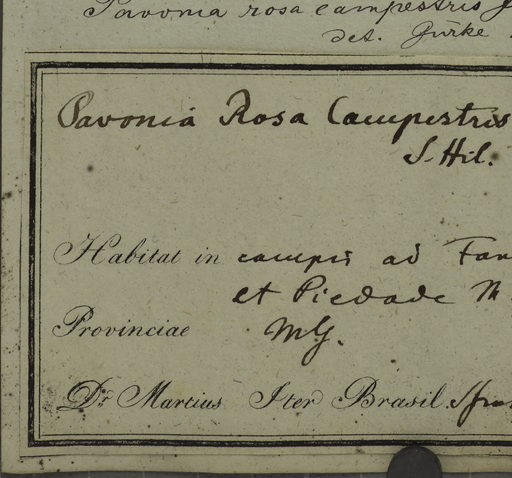 Pavonia rosa campestris
det. Gürke
Pavonia Rosa Campestris
S. Hil.
Habitat in campis ad
et Piedade
Provinciae MG.
Dr. Martius Iter Brasil.